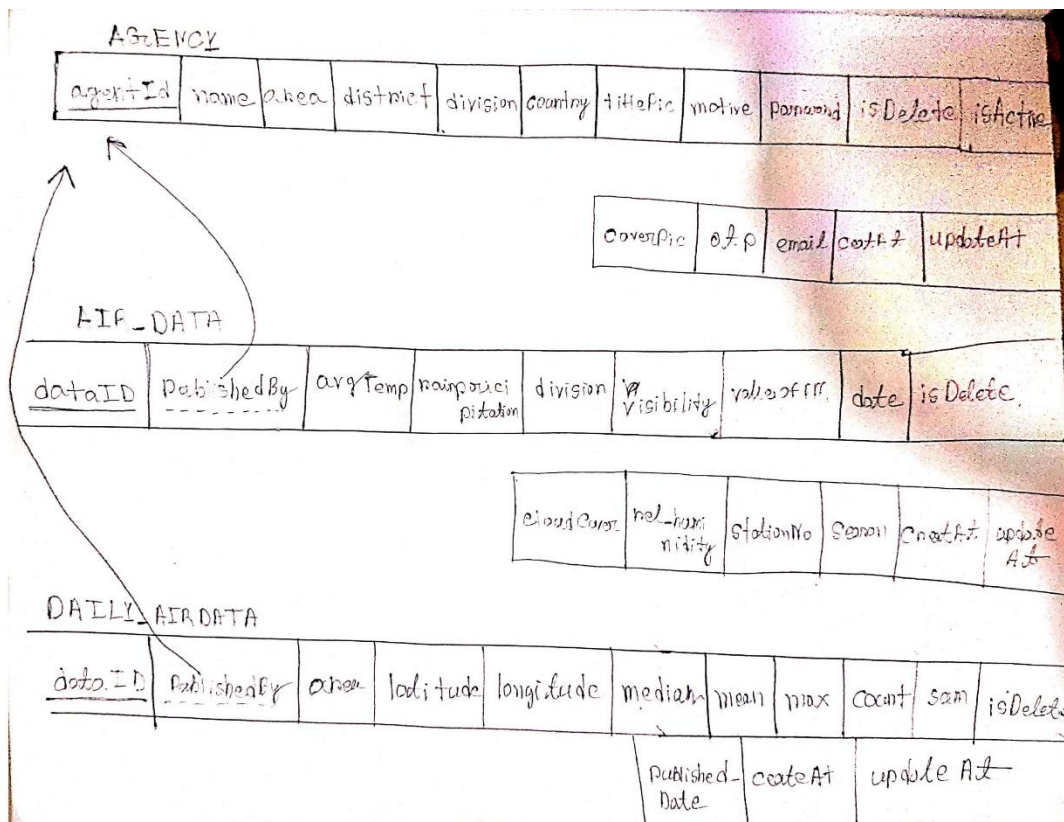 AGENCY
agentId name area district division country titlePic motive password isDelete isActive
coverPic otp email update At
AIR_DATA
dataID PablishedBy avgTemp division visibility date isDelete.
cloudCover stationNo Season CreatAt update
At
DAILY_AIRDATA
data.ID PablishedBy area latitude longitude median mean max count sum isDelete
Published-
Date createAt update At